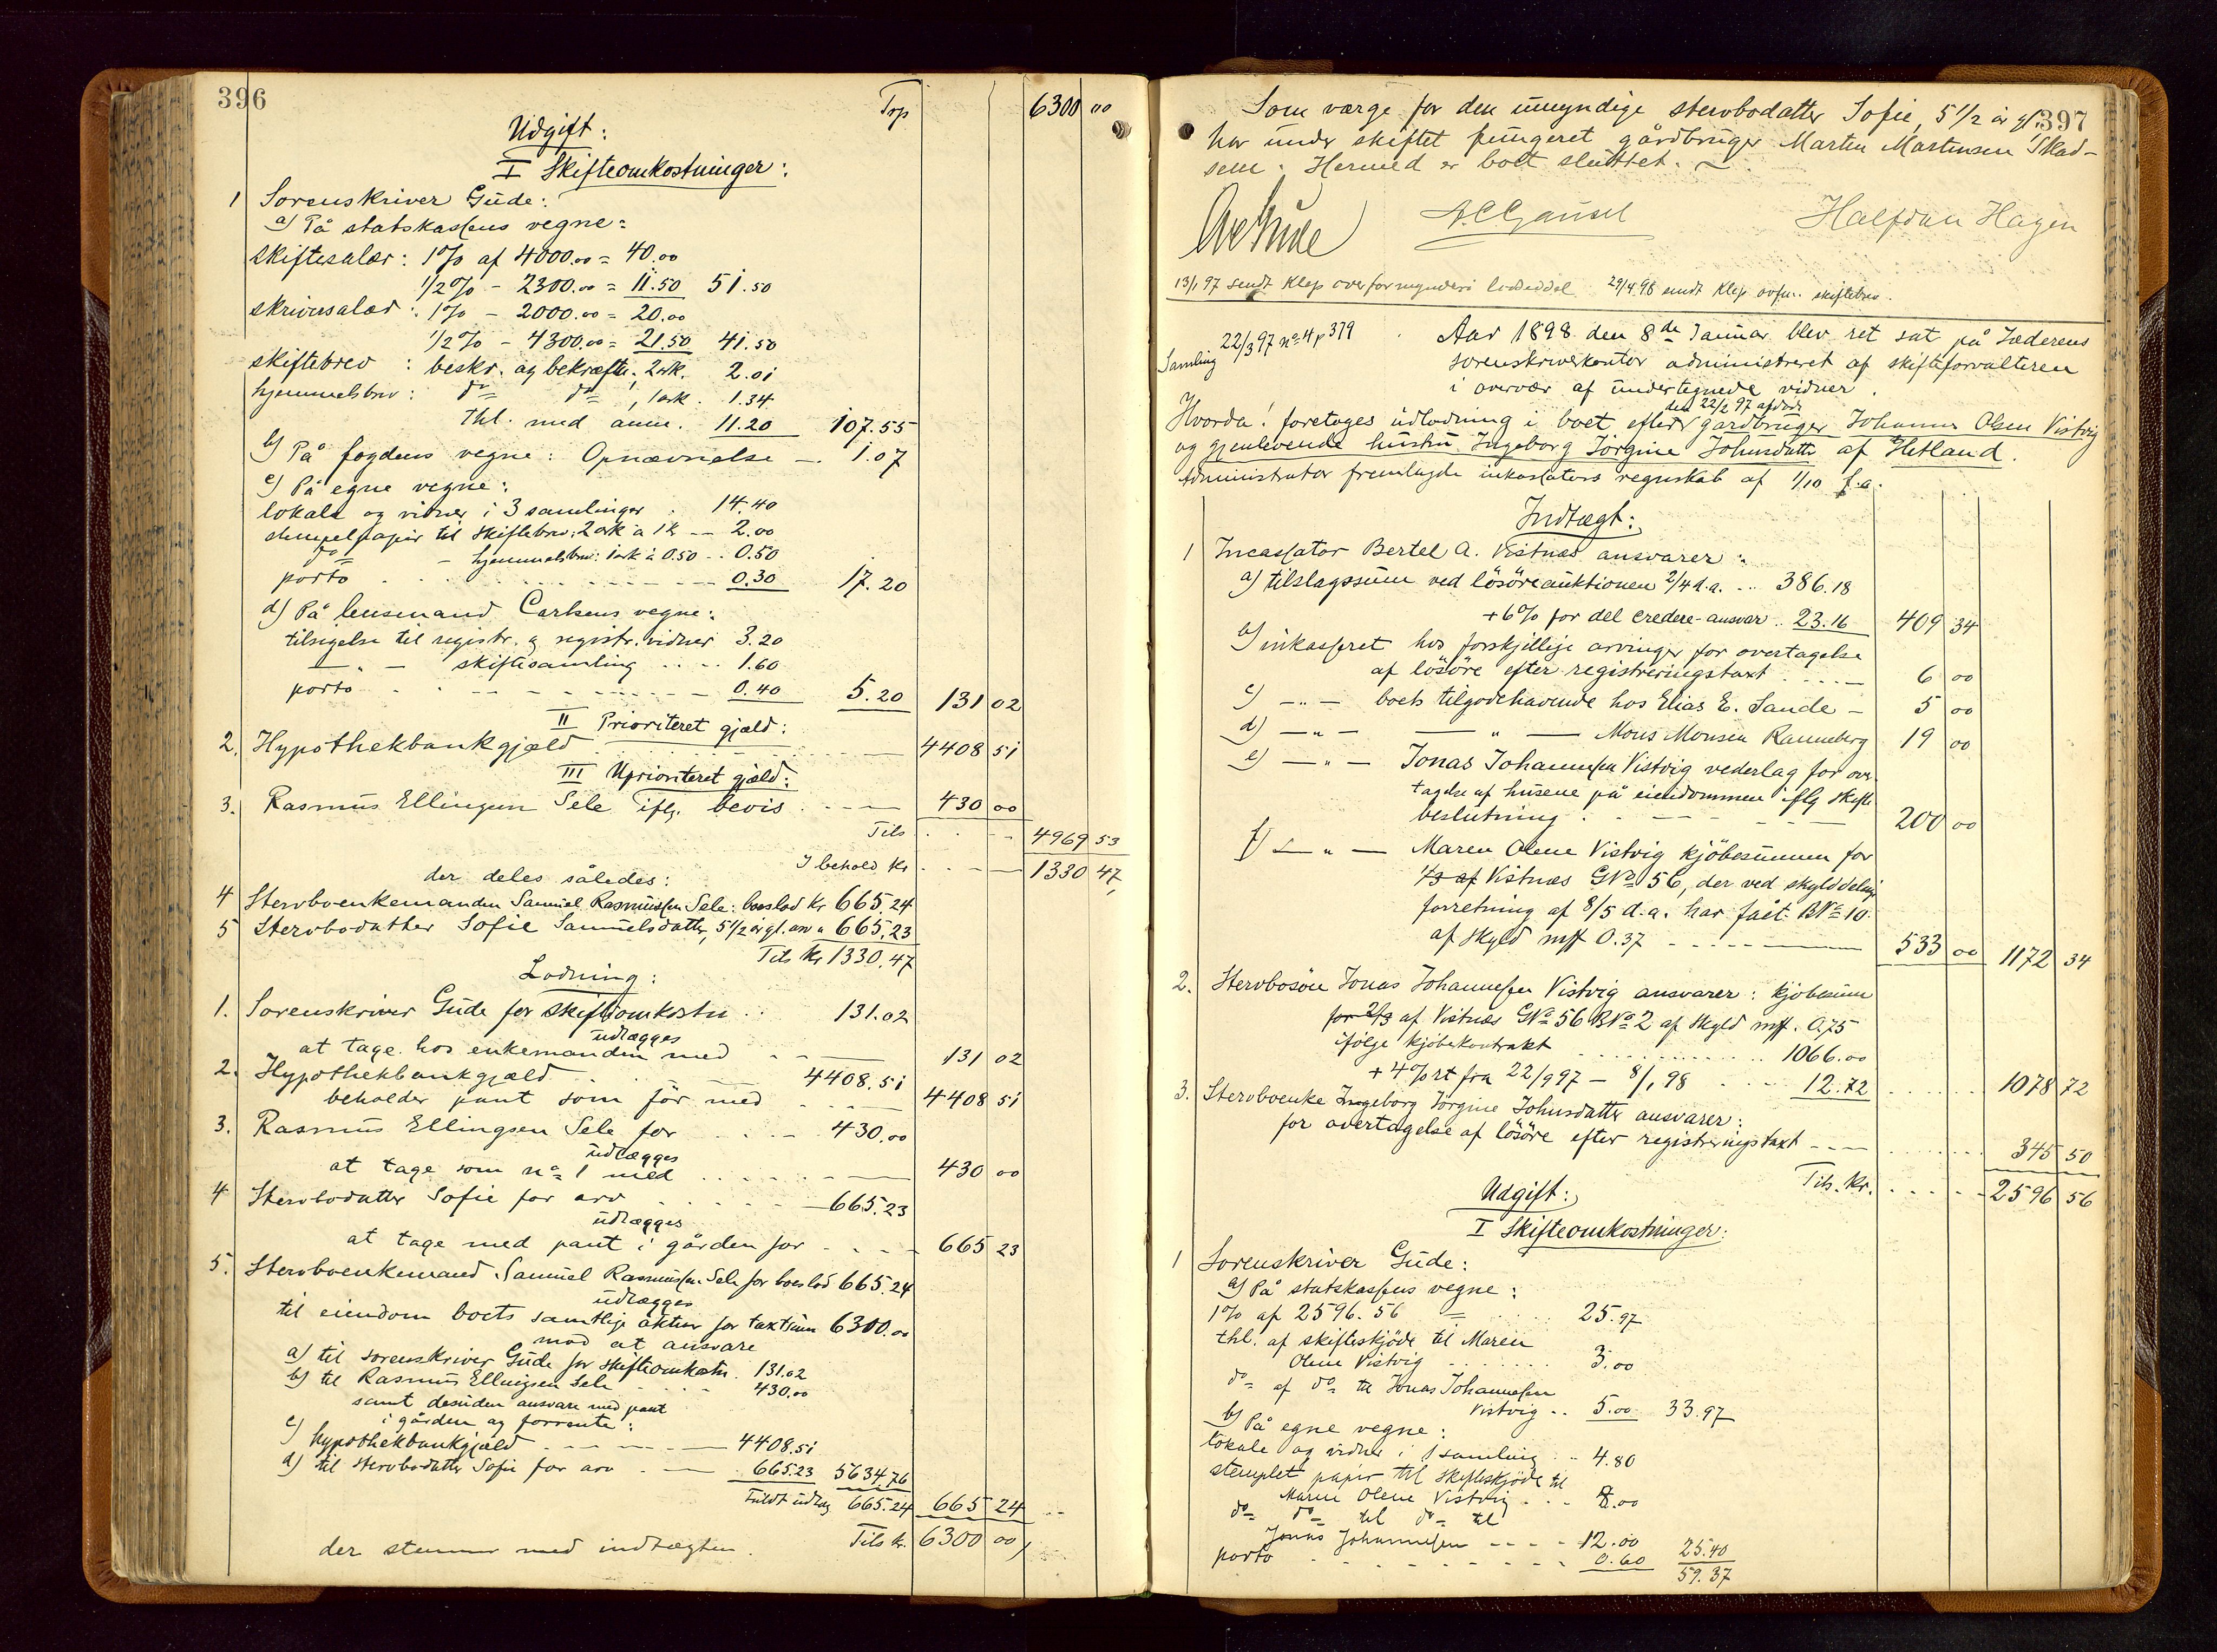 396
Trp 6300 00
Udgift:
I Skifteomkostninger:
1 Sorenskriver Gude:
a) På statskassens vegne:
skiftesalær: 1% af 4000.00 = 40.00
1/2% - 2300.00 = 11.50 51.50
skriversalær: 1% - 2000.00 = 20.00
1/2% - 4300.00 = 21.50 41.50
skiftebrev: beskr. og bekræft. 2 ark. 2.01
hjemmelsbrev: do do, 1 ark. 1.34
thl. med anm. 11.20 107.55
b) På fogdens vegne: Opnævnelse - 1.07
c) På egne vegne:
lokale og vidner i 3 samlinger . 14.40
stempelpapir til skiftebrev: 2 ark à 1 k - 2.00
do - hjemmelsbrev: 1 ark à 0.50 .. 0.50
porto 0.30 17.20
d) På lensmand Carlsens vegne:
tilsigelse til registr. og registr. vidner 3.20
— " — skiftesamling .... 1.60
porto 0.40 5.20 131 02
II Prioriteret gjæld:
2. Hypothekbankgjæld 4408 51
III Uprioriteret gjæld:
3. Rasmus Ellingsen Sele iflg. bevis 430 00
Tils 4969 53
I behold Kr 1330 47
der deles således:
4 Stervboenkemanden Samuel Rasmussen Sele: boeslod Kr 665.24
5 Stervbodatter Sofie Samuelsdatter, 5 1/2 år gl. arv " 665.23
Tils Kr 1330.47
Lodning:
1. Sorenskriver Gude for skifteomkostn .. 131.02
udlægges
at tage hos enkemanden med 131 02
2. Hypothekbankgjæld 4408.51
beholder pant som før med 4408 51
3. Rasmus Ellingsen Sele for 430.00
udlægges
at tage som no 1 med 430 00
4 Stervbodatter Sofie for arv 665.23
udlægges
at tage med pant i gården for 665 23
5. Stervboenkemand Samuel Rasmussen Sele for boeslod 665.24
udlægges
til eiendom boets samtlige aktiva for taxtsum 6300.00
mod at ansvare
a) til sorenskriver Gude for skifteomkostn. 131.02
b) til Rasmus Ellingsen Sele 430.00
samt desuden ansvare med pant
i gården og forrente:
c) hypothekbankgjæld 4408.51
d) til stervbodatter Sofie for arv 665.23 5634.76
Fuldt udlæg 665.24 665 24
der stemmer med indtægten. Tils Kr. 6300 00
397
Som værge for den umyndige stervbodatter Sofie, 5 1/2 år gl.
har under skiftet fungeret gårdbruger Martin Martinsen Skad-
sem. Hermed er boet sluttet.
Gude A. C. Gausel Halfdan Hagen
13/1 97 sendt Klep overformynderi loddeddel 29/4 98 sendt Klep ovfm. skiftebrev.
Samling 22/3 97 no 4 p 379
Aar 1898 den 8de Januar blev ret sat på Jæderens
sorenskriverkontor administreret af skifteforvalteren
i overvær af undertegnede vidner.
Hvorda! foretoges udlodning i boet efter den 22/2 97 afdøde gårdbruger Johannes Olsen Vistvig
og gjenlevende hustru Ingeborg Jörgine Johnsdatter af Hetland.
Administrator fremlagde inkassators regnskab af 1/10 f.a.
Indtægt:
1 Incassator Bertel A. Vistnæs ansvarer:
a) tilslagssum ved løsøreauktionen 2/4 d.a. .. 386.18
+ 6% for del credere-ansvar .. 23.16 409 34
b) inkasseret hos forskjellige arvinger for overtagelse
af løsøre efter registreringstaxt 6 00
c) — " — boets tilgodehavende hos Elias E. Sande - 5 00
d) — " — — " — Mons Monsen Ranneberg 19 00
e) — " — Jonas Johannessen Vistvig vederlag for over-
tagelse af husene på eiendommen iflg skifte
beslutning 200 00
f) — " — Maren Olene Vistvig kjøbesummen for
1/3 af Vistnæs GNo 56, der ved skylddelings
forretning af 8/5 d.a. har fået BNo 10.
af skyld mrk 0.37 533 00 1172 34
2. Stervbosøn Jonas Johannessen Vistvig ansvarer: kjøbesum
for 2/3 af Vistnæs GNo 56 BNo 2 af skyld mrk. 0,75
ifølge kjøbekontrakt 1066.00
+ 4% rt fra 22/9 97 - 8/1 98 12.72 1078 72
3. Stervboenke Ingeborg Jörgine Johnsdatter ansvarer:
for overtagelse af løsøre efter registreringstaxt 345 50
Tils. Kr. 2596 56
Udgift:
I Skifteomkostninger:
1 Sorenskriver Gude:
a) På statskassens vegne:
1% af 2596.56 = 25.97
thl. af skifteskjøde til Maren
Olene Vistvig 3.00
do af do til Jonas Johannessen
Vistvig .. 5.00 33.97
b) På egne vegne:
lokale og vidner i 1 samling .. 4.80
stemplet papir til skifteskjøde til
Maren Olene Vistvig 8.00
do do til do til
Jonas Johannessen 12.00
porto 0.60 25.40
59.37